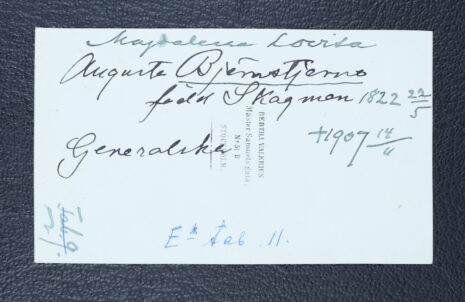 Magdalena Lovisa
Augusta Björnstjerna
född Skogman 1822 22/5
†1907 14/11
Generalska
BERTHA VALERIUS
Mäster Samuels gata.
No 5. B
STOCKHOLM.
Tab. 9.
Eᵃ Tab 11.